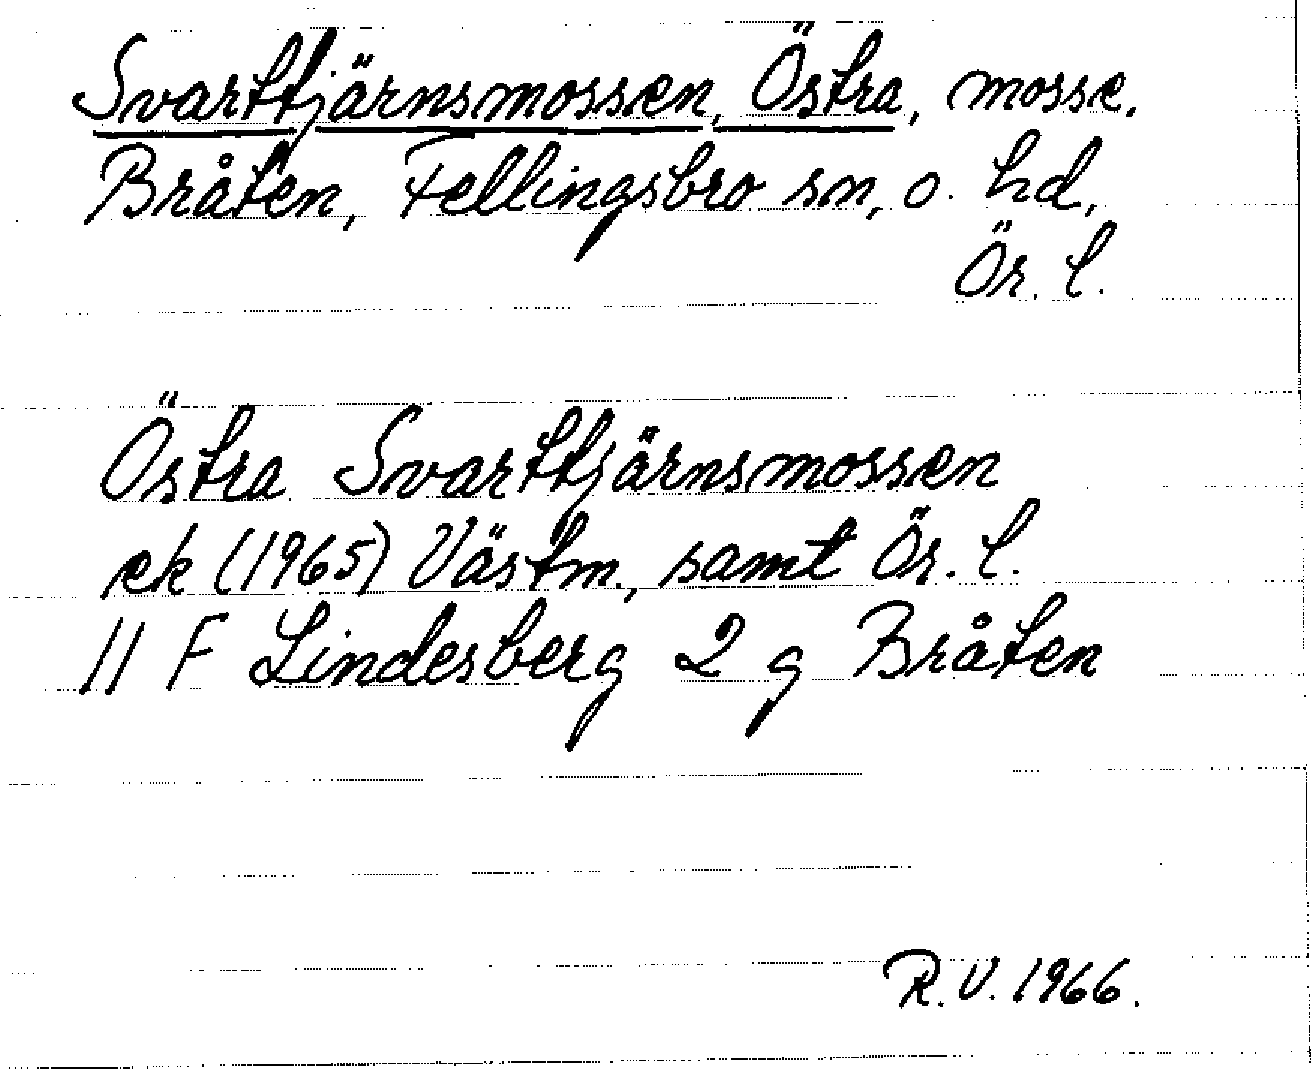 Svarttjärnsmossen, Östra, mosse.
Bråten, Fellingsbro sn, o. hd,
Ör. l.
Östra Svarttjärnsmossen
ek (1965) Västm., samt Ör. l.
11 F Lindesberg 2 g Bråten
R.V. 1966.